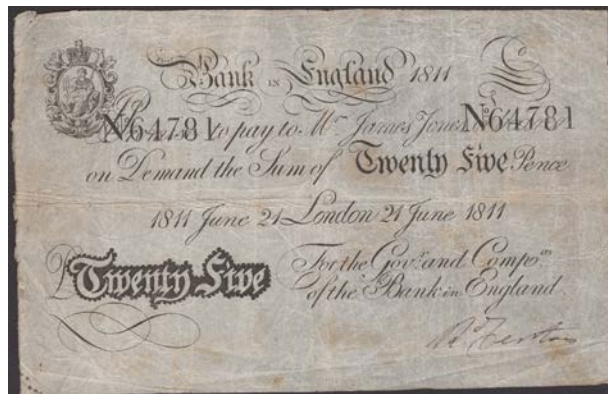 Bank IN England 1811
No 64781 to pay to Mr. James Jones No 64781
on Demand the Sum of Twenty Five Pence
1811 June 21 London 21 June 1811
For the Govr. and Compas.
£ Twenty Five of the Bank in England